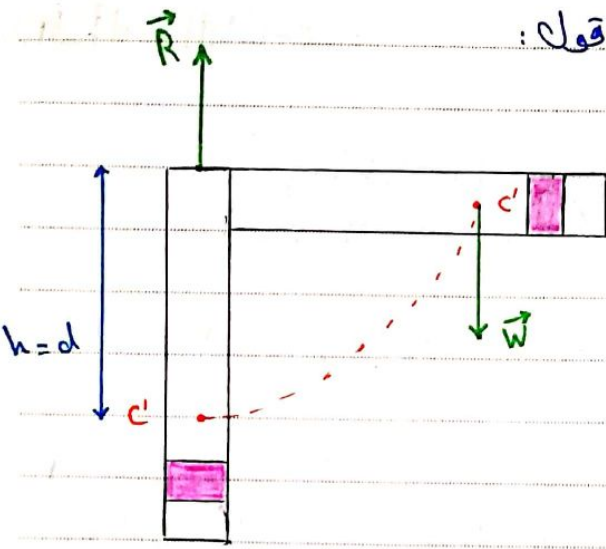 قول :
R
C'
W
h = d
C'